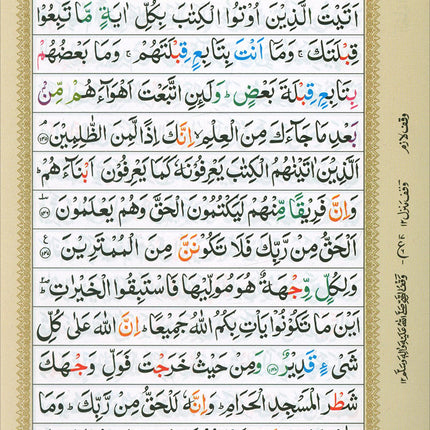 اَتَيْتَ الَّذِيْنَ اُوْتُوا الْكِتٰبَ بِكُلِّ اٰيَةٍ مَّا تَبِعُوْا
قِبْلَتَكَ ۚ وَمَاۤ اَنْتَ بِتَابِعٍ قِبْلَتَهُمْ ۚ وَمَا بَعْضُهُمْ
بِتَابِعٍ قِبْلَةَ بَعْضٍ ؕ وَلَئِنِ اتَّبَعْتَ اَهْوَآءَهُمْ مِّنْۢ
بَعْدِ مَا جَآءَكَ مِنَ الْعِلْمِ ۙ اِنَّكَ اِذًا لَّمِنَ الظّٰلِمِيْنَ ۘ ﴿۱۴۵﴾
اَلَّذِيْنَ اٰتَيْنٰهُمُ الْكِتٰبَ يَعْرِفُوْنَهٗ كَمَا يَعْرِفُوْنَ اَبْنَآءَهُمْ ؕ
وَاِنَّ فَرِيْقًا مِّنْهُمْ لَيَكْتُمُوْنَ الْحَقَّ وَهُمْ يَعْلَمُوْنَ ؔ ﴿۱۴۶﴾
اَلْحَقُّ مِنْ رَّبِّكَ فَلَا تَكُوْنَنَّ مِنَ الْمُمْتَرِيْنَ ﴿۱۴۷﴾ ع
وَلِكُلٍّ وِّجْهَةٌ هُوَ مُوَلِّيْهَا فَاسْتَبِقُوا الْخَيْرٰتِ ؕؔ
اَيْنَ مَا تَكُوْنُوْا يَاْتِ بِكُمُ اللّٰهُ جَمِيْعًا ؕ اِنَّ اللّٰهَ عَلٰى كُلِّ
شَىْءٍ قَدِيْرٌ ﴿۱۴۸﴾ وَمِنْ حَيْثُ خَرَجْتَ فَوَلِّ وَجْهَكَ
شَطْرَ الْمَسْجِدِ الْحَرَامِ ؕ وَاِنَّهٗ لَلْحَقُّ مِنْ رَّبِّكَ ؕ وَمَا
وقف لازم
وقف منزل ۱۲